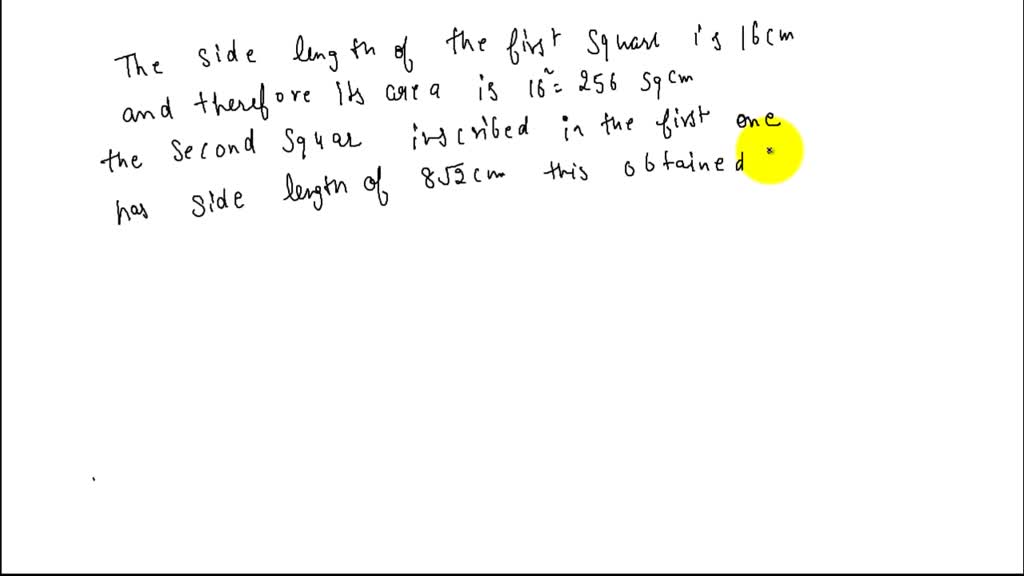 The side length of the first Square is 16cm
and therefore its area is 16² = 256 sqcm
the second squar inscribed in the first one
has side length of 8√2 cm this obtained